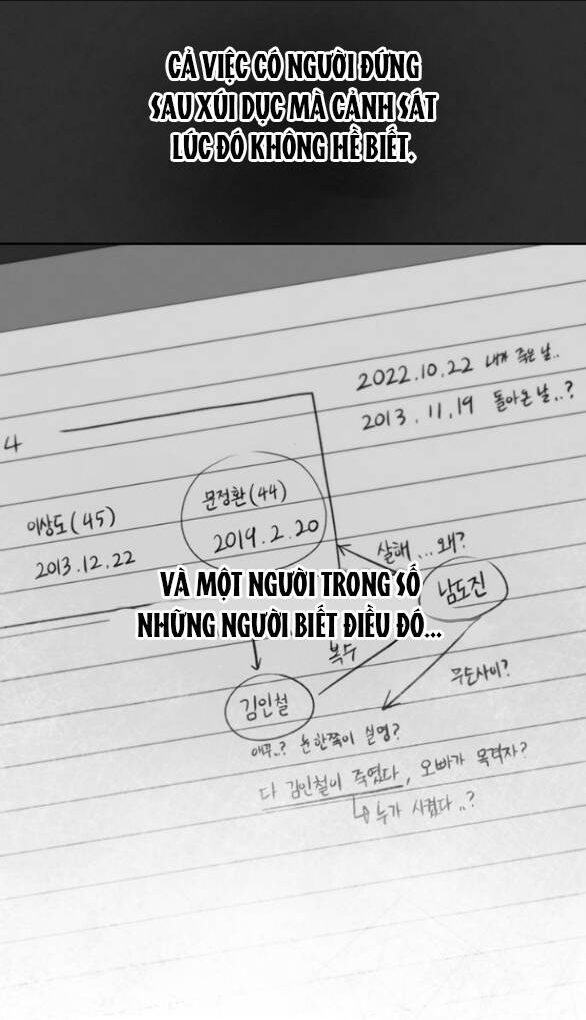 CẢ VIỆC CÓ NGƯỜI ĐỨNG
SAU XÚI DỤC MÀ CẢNH SÁT
LÚC ĐÓ KHÔNG HỀ BIẾT.
2022.10.22 내가 죽은 날..
2013.11.19 돌아온 날..?
4
이상도(45)
2013.12.22
문정환(44)
2019.2.20
살해...왜?
남도진
VÀ MỘT NGƯỜI TRONG SỐ
NHỮNG NGƯỜI BIẾT ĐIỀU ĐÓ...
복수
무슨사이?
김인철
애꾸..? 눈 한쪽이 실명?
다 김인철이 죽였다, 오빠가 목격자?
누가 시켰다..?